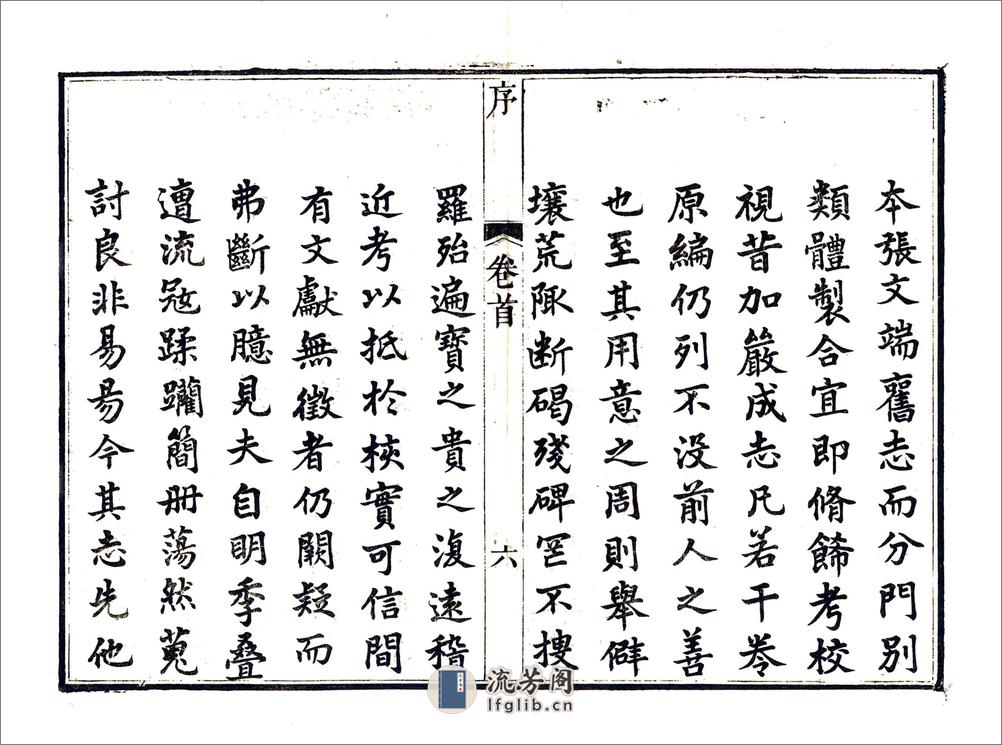 本張文端舊志而分門別
類體製合宜即脩餙考校
視昔加嚴成志凡若干卷
原編仍列不沒前人之善
也至其用意之周則舉僻
壤荒陬断碣殘碑罔不搜
序
卷首
六
羅殆遍寳之貴之復遠稽
近考以抵於核實可信間
有文獻無徵者仍闕疑而
弗斷以臆見夫自明季叠
遭流冦蹂躪簡册蕩然蒐
討良非易易今其志先他
流芳阁
lfglib.cn